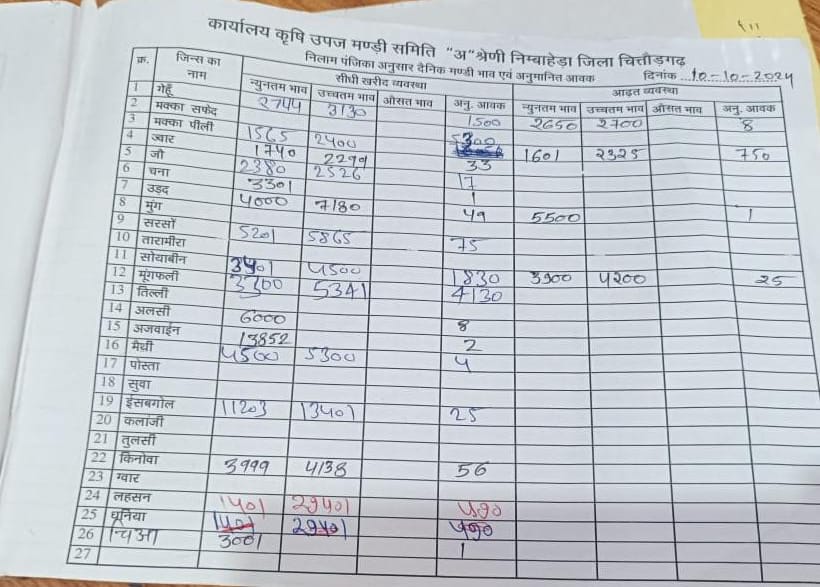 कार्यालय कृषि उपज मण्डी समिति "अ" श्रेणी निम्बाहेड़ा जिला चित्तौड़गढ़
निलाम पंजिका अनुसार दैनिक मण्डी भाव एवं अनुमानित आवक दिनांक 10-10-2024
क्र. जिन्स का नाम सीधी खरीद व्यवस्था आढ़त व्यवस्था
न्युनतम भाव उच्चतम भाव औसत भाव अनु. आवक न्युनतम भाव उच्चतम भाव औसत भाव अनु. आवक
1 गेहूँ 2744 3130 1500 2650 2700 8
2 मक्का सफेद
3 मक्का पीली 1565 2400 5300 1601 2325 750
4 ज्वार 1740 2299 33
5 जौ 2380 2526 17
6 चना 3301 1
7 उड़द 4000 7180 49 5500 1
8 मुंग
9 सरसों 5201 5865 75
10 तारामीरा
11 सोयाबीन 3401 4500 1830 3900 4200 25
12 मूंगफली 3300 5341 4130
13 तिल्ली
14 अलसी 6000 8
15 अजवाईन 13852 2
16 मैथी 4500 5300 4
17 पोस्ता
18 सुवा
19 ईसबगोल 11203 13401 25
20 कलोंजी
21 तुलसी
22 किनोवा 3999 4138 56
23 ग्वार
24 लहसन 1401 29401 490
25 धनिया 1401 29401 490
26 चिआ 3001 1
27